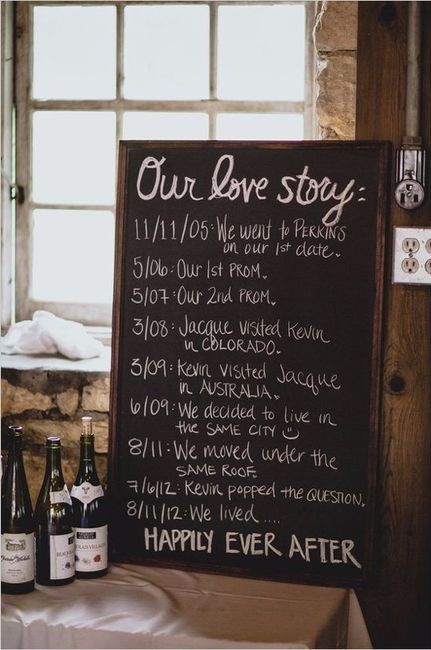 Our love story:
11/11/05: We went to PERKINS
on our 1st date.
5/06: Our 1st PROM.
5/07: Our 2nd PROM.
3/08: Jacque visited Kevin
in COLORADO.
3/09: Kevin visited Jacque
in AUSTRALIA.
6/09: We decided to live in
the SAME CITY
8/11: We moved under the
SAME ROOF.
7/6/12: Kevin popped the QUESTION.
8/11/12: We lived ....
HAPPILY EVER AFTER